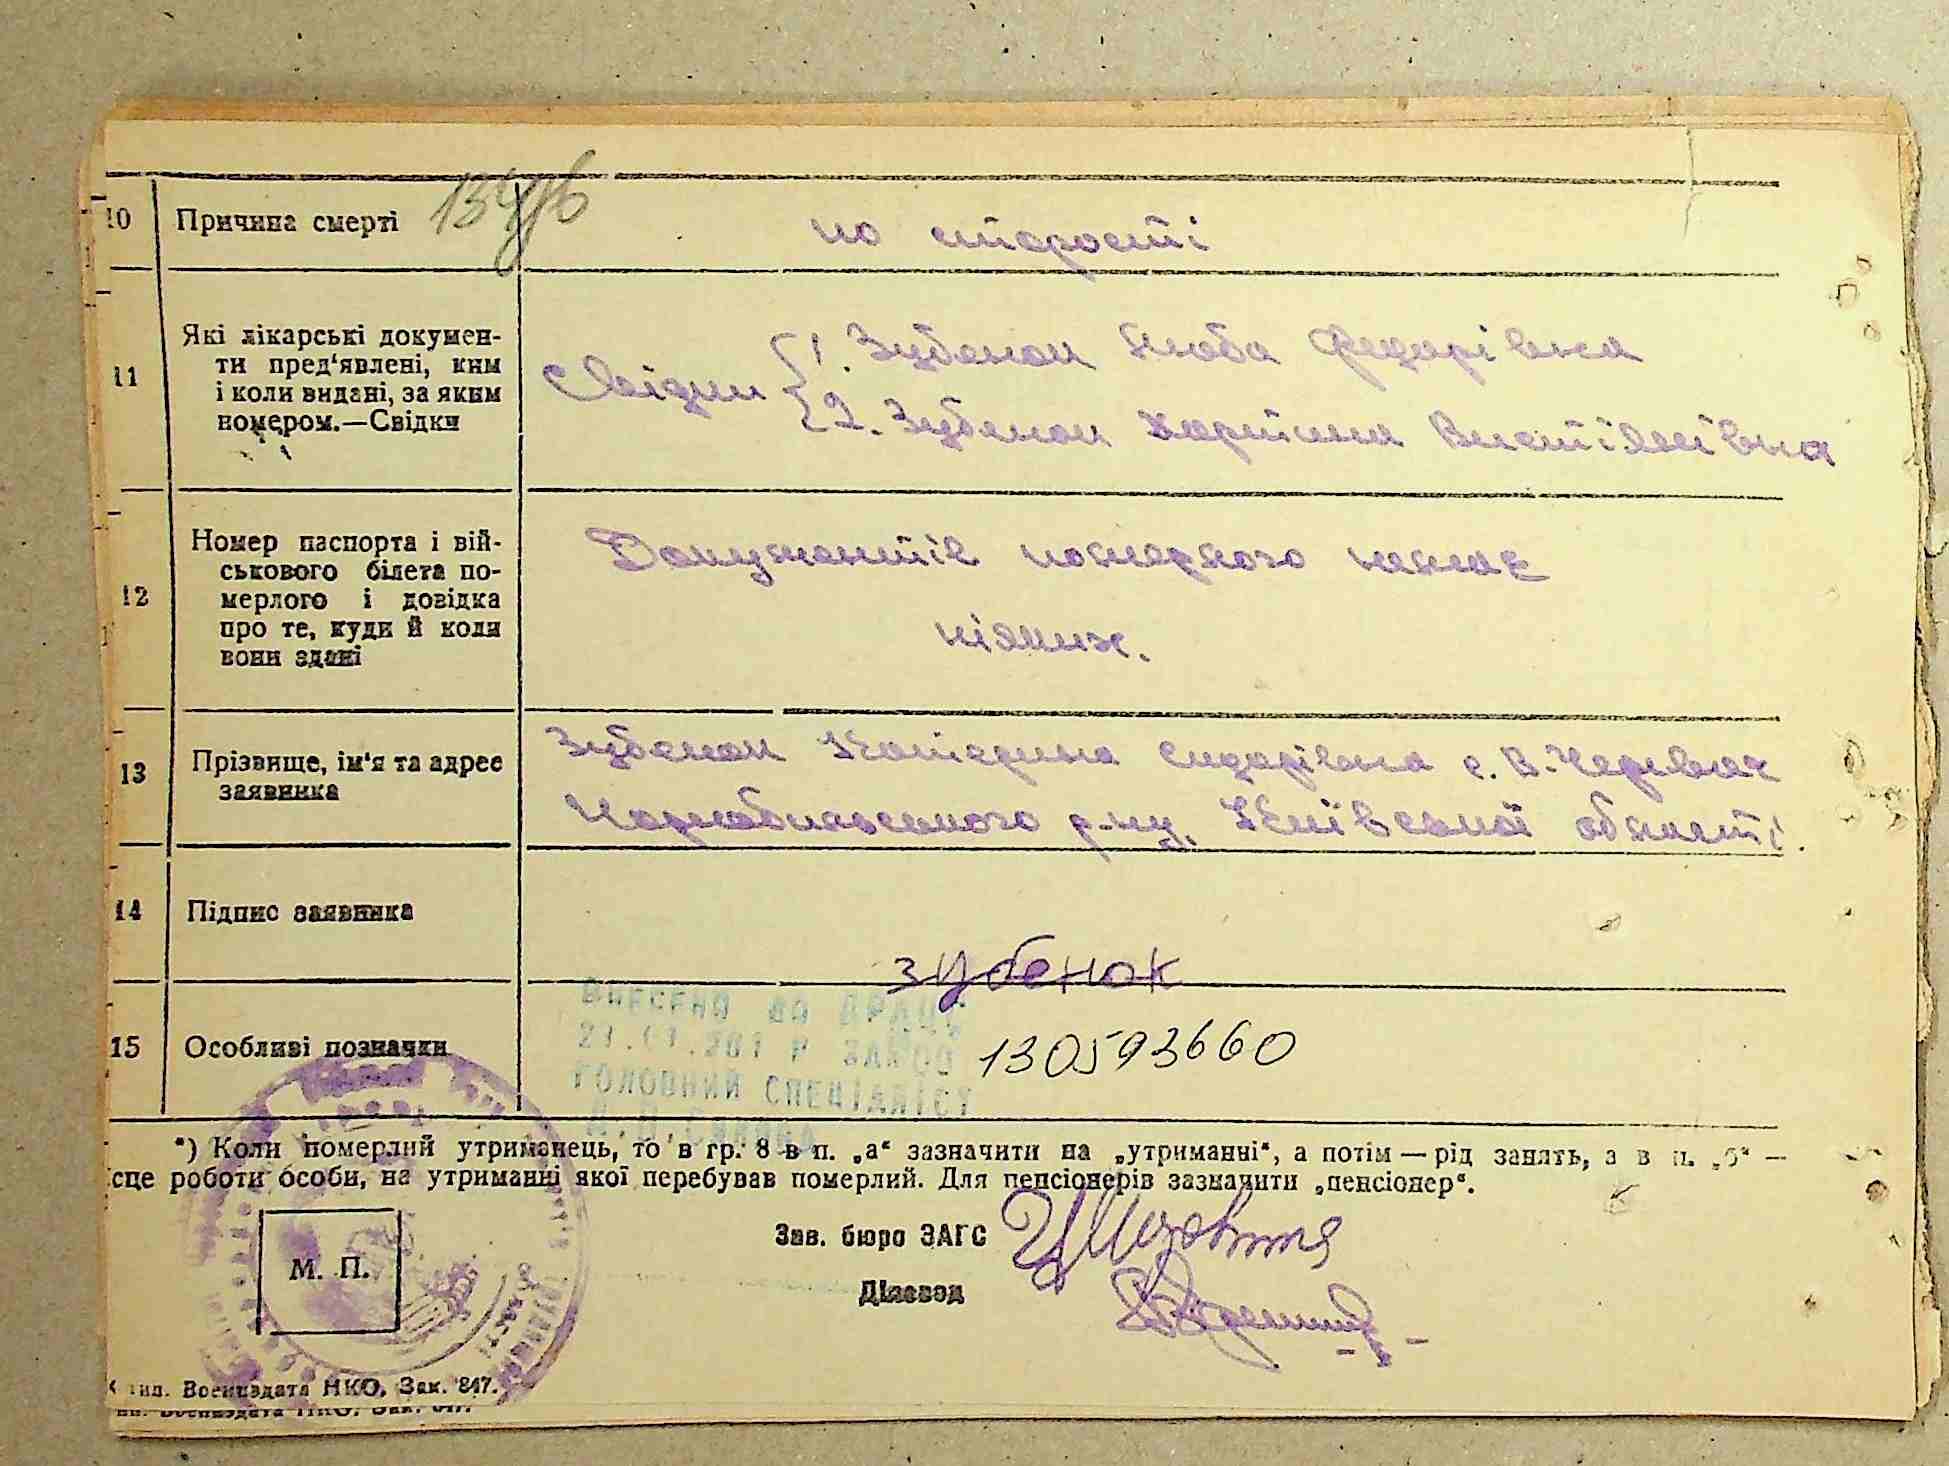 10 Причина смерті по старості
11 Які лікарські докумен-
ти пред'явлені, ким
і коли видані, за яким
номером.—Свідки
Свідки 1. Зубенок Люба Федорівна
2. Зубенок
12 Номер паспорта і вій-
ськового білета по-
мерлого і довідка
про те, куди й коли
вони здані
Документів померлого немає
ніяких.
13 Прізвище, ім'я та адрес
заявника
Зубенок Катерина Сидорівна с. В. Черевач
Чорнобильського р-ну, Київської області.
14 Підпис заявника
зубенок
15 Особливі позначки
ВНЕСЕНО ДО ДРАЦС
ГОЛОВНИЙ СПЕЦІАЛІСТ
130593660
*) Коли померлий утриманець, то в гр. 8 в п. „а“ зазначити на „утриманні“, а потім — рід занять, а в п. „б“ —
сце роботи особи, на утриманні якої перебував померлий. Для пенсіонерів зазначити „пенсіонер“.
Зав. бюро ЗАГС
Діловод
М. П.
тип. Воениздата НКО. Зак. 847.